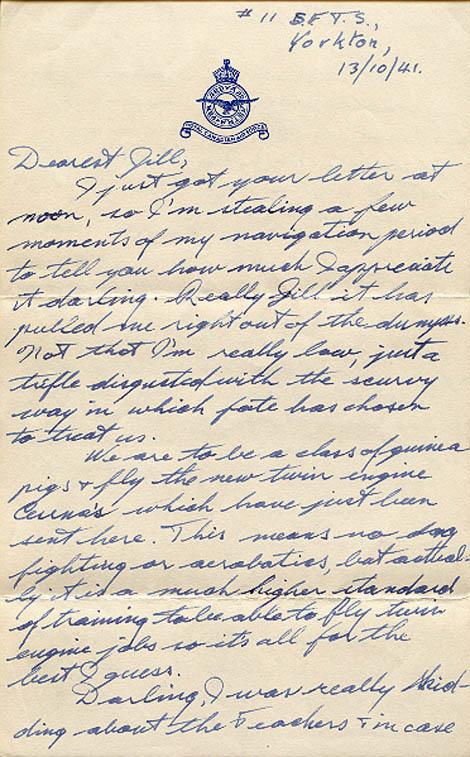 #11 S.F.T.S.,
Yorkton,
13/10/41.
ROYAL CANADIAN AIR FORCE
Dearest Jill,
I just got your letter at
noon, so I'm stealing a few
moments of my navigation period
to tell you how much I appreciate
it darling. Really Jill it has
pulled me right out of the dumps.
Not that I'm really low, just a
trifle disgusted with the scurvy
way in which fate has chosen
to treat us.
We are to be a class of guinea
pigs & fly the new twin engine
Cessna's which have just been
sent here. This means no dog
fighting or aerobatics, but actual-
ly it is a much higher standard
of training to be able to fly twin
engine jobs so it's all for the
best I guess.
Darling, I was really kid-
ding about the teachers & in case